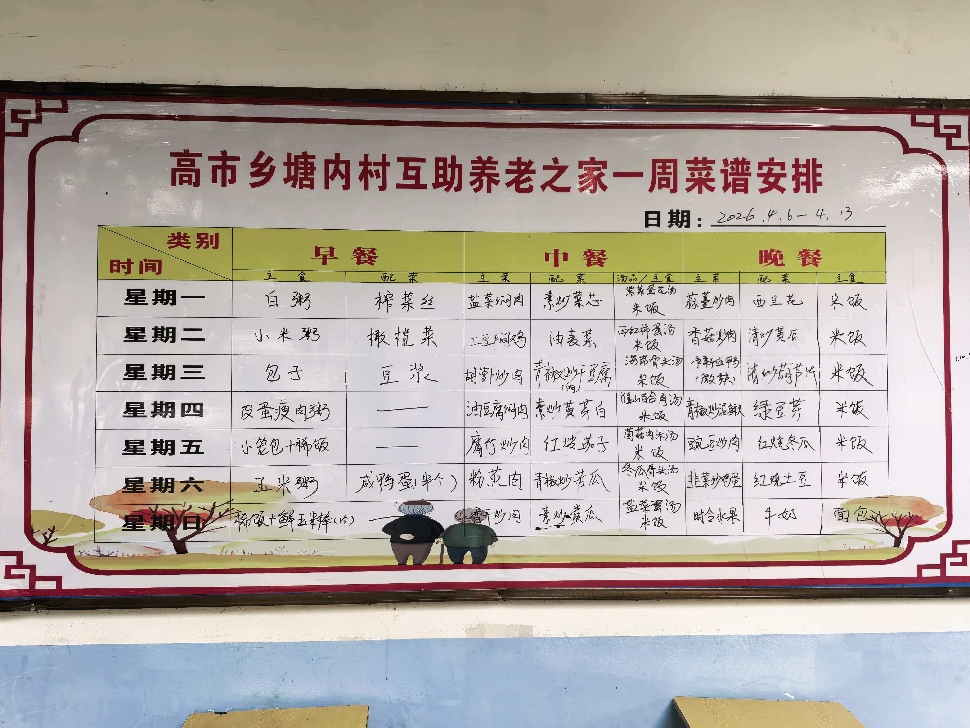 高市乡塘内村互助养老之家一周菜谱安排
日期: 2026.4.6-4.13
类别 早餐 中餐 晚餐
时间 主食 配菜 主菜 配菜 汤品/主食 主菜 配菜 主食
星期一 白粥 榨菜丝 盐菜焖肉 素炒菜芯 紫菜蛋花汤 米饭 蒜薹炒肉 西兰花 米饭
星期二 小米粥 橄榄菜 油麦菜 米饭 香菇炒肉 清炒黄瓜 米饭
星期三 包子 豆浆 米饭 米饭
星期四 皮蛋瘦肉粥 — 油豆腐焖肉 素炒黄芽白 米饭 绿豆芽 米饭
星期五 小笼包+稀饭 — 腐竹炒肉 红烧茄子 菌菇肉沫汤 米饭 豌豆炒肉 红烧冬瓜 米饭
星期六 玉米粥 咸鸭蛋(半个) 粉蒸肉 青椒炒苦瓜 冬瓜骨头汤 米饭 韭菜炒鸡蛋 红烧土豆 米饭
星期日 稀饭+鲜玉米棒(1个) — 素炒黄瓜 盐菜蛋汤 米饭 时令水果 牛奶 面包